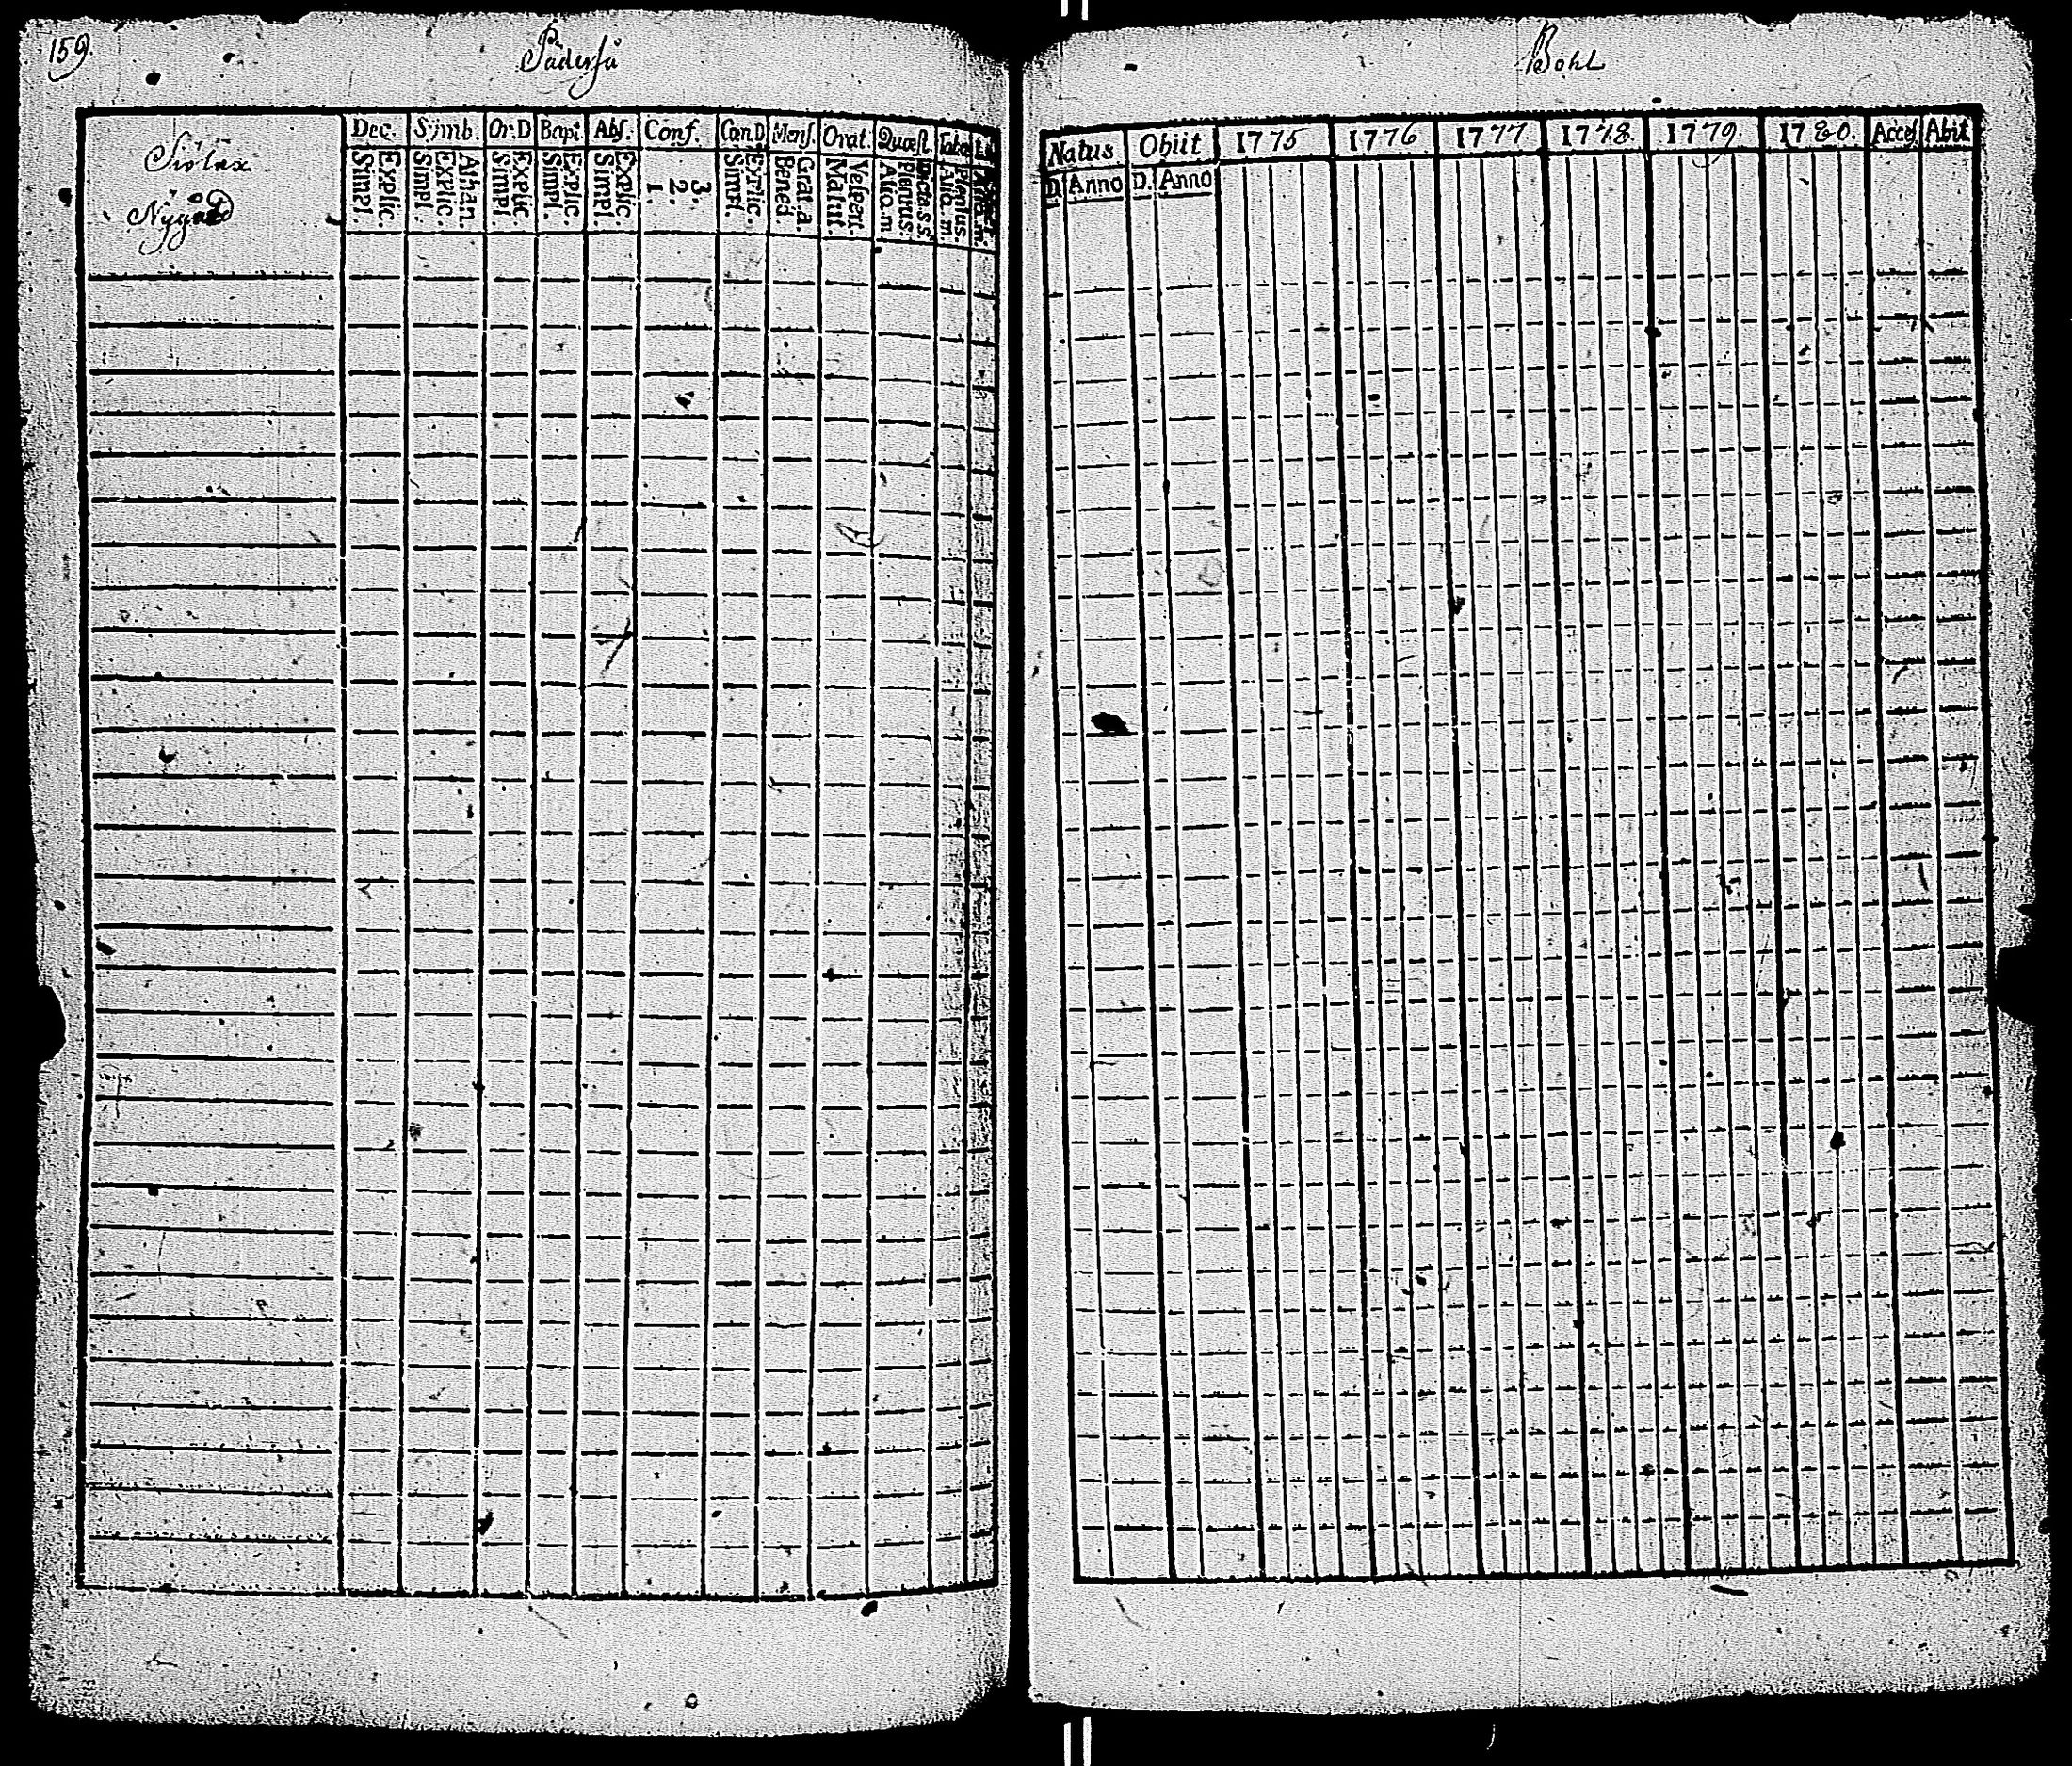 159.
Pädersö
Bohl
Siölax
Nygård
Dec. Simb. Or.D Bapt. Abſ. Conf. Cœn.D Menſ. Orat. Quæſt.
Simpl. Explic. Simpl. Explic. Athan. Simpl. Explic. Simpl. Explic. Simpl. Explic. 1. 2. 3. Simpl. Explic. Bened. Grat.a. Matut. Veſpert. Alio.m Plenius.
Natus Obiit 1775 1776 1777. 1778. 1779. 1780. Acceſ Abit
D. Anno D. Anno